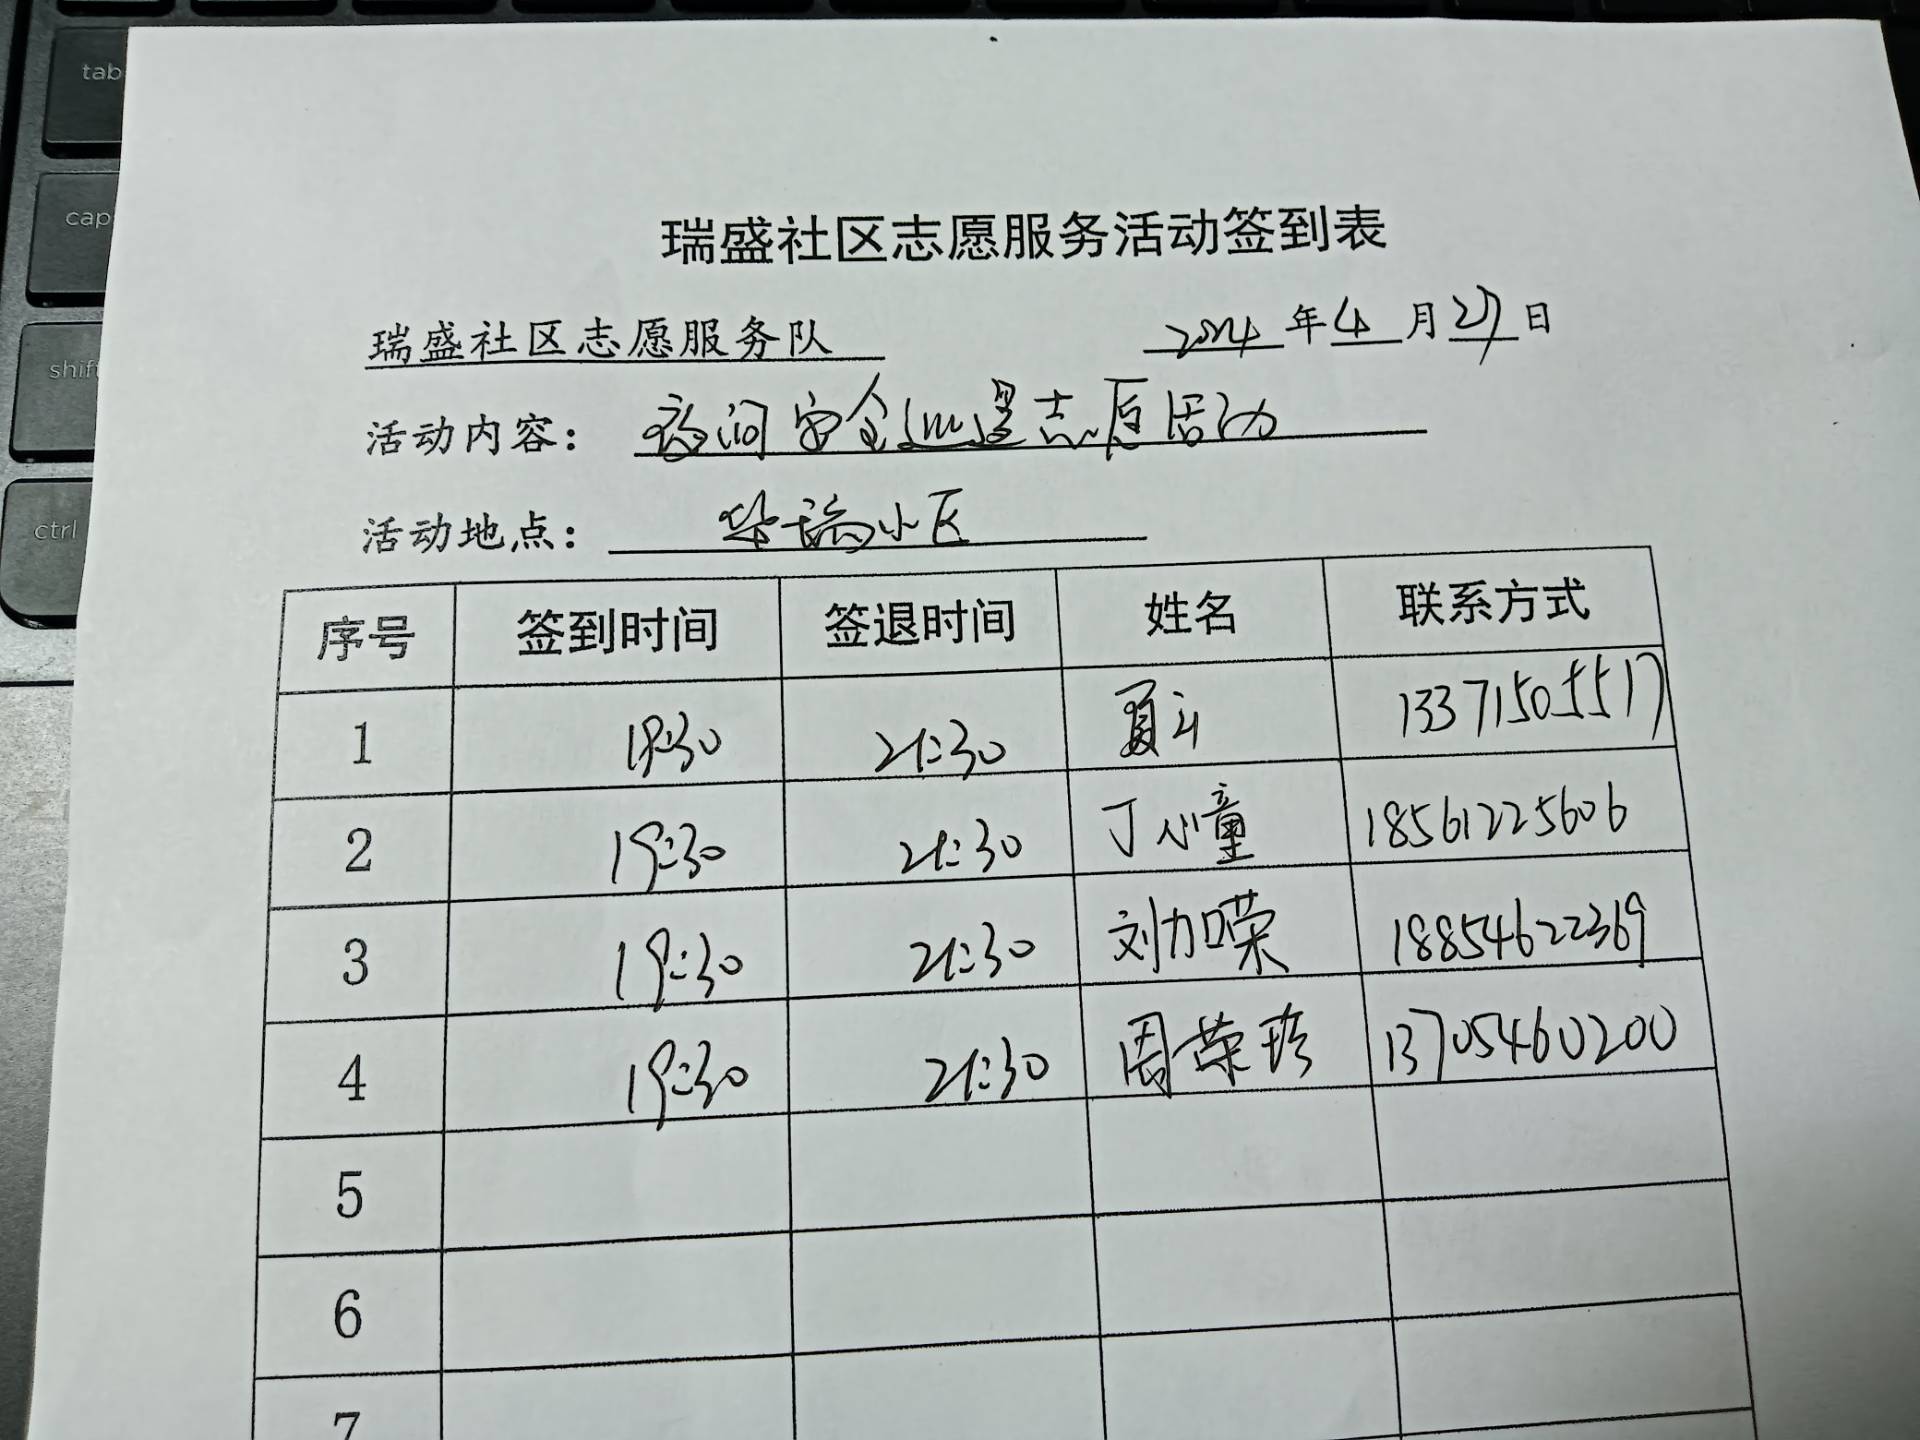 tab
cap
shift
ctrl
瑞盛社区志愿服务活动签到表
瑞盛社区志愿服务队 2024年4月27日
活动内容： 夜间安全巡逻志愿活动
活动地点： 华瑞小区
序号 签到时间 签退时间 姓名 联系方式
1 19:30 21:30 夏 13371505517
2 19:30 21:30 丁小童 18561225606
3 19:30 21:30 刘加嵘 18854622369
4 19:30 21:30 周荣珍 13705460200
5
6
7